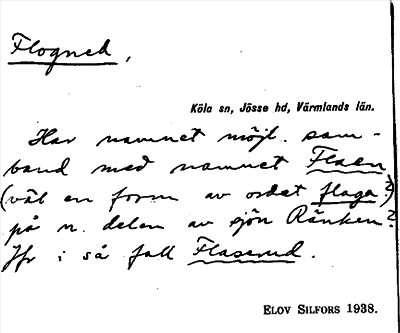 Flogned,
Köla sn, Jösse hd, Värmlands län.
Har namnet möjl. sam-
band med namnet Flaen
(väl en form av ordet flaga?)
på n. delen av sjön Ränken?
Jfr i så fall Flaserud.
ELOV SILFORS 1938.